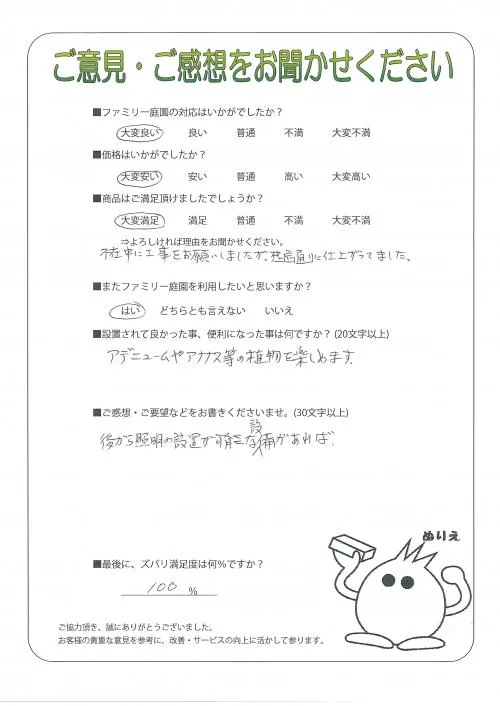 ご意見・ご感想をお聞かせください
■ファミリー庭園の対応はいかがでしたか？
大変良い 良い 普通 不満 大変不満
■価格はいかがでしたか？
大変安い 安い 普通 高い 大変高い
■商品はご満足頂けましたでしょうか？
大変満足 満足 普通 不満 大変不満
⇒よろしければ理由をお聞かせください。
不在中に工事をお願いしましたが、想像通りに仕上がってました。
■またファミリー庭園を利用したいと思いますか？
はい どちらとも言えない いいえ
■設置されて良かった事、便利になった事は何ですか？(20文字以上)
アデニュームやアナナス等の植物を楽しめます。
■ご感想・ご要望などをお書きくださいませ。(30文字以上)
後から照明の設置が可能な設備があれば、
ぬりえ
■最後に、ズバリ満足度は何％ですか？
100 %
ご協力頂き、誠にありがとうございました。
お客様の貴重な意見を参考に、改善・サービスの向上に活かして参ります。